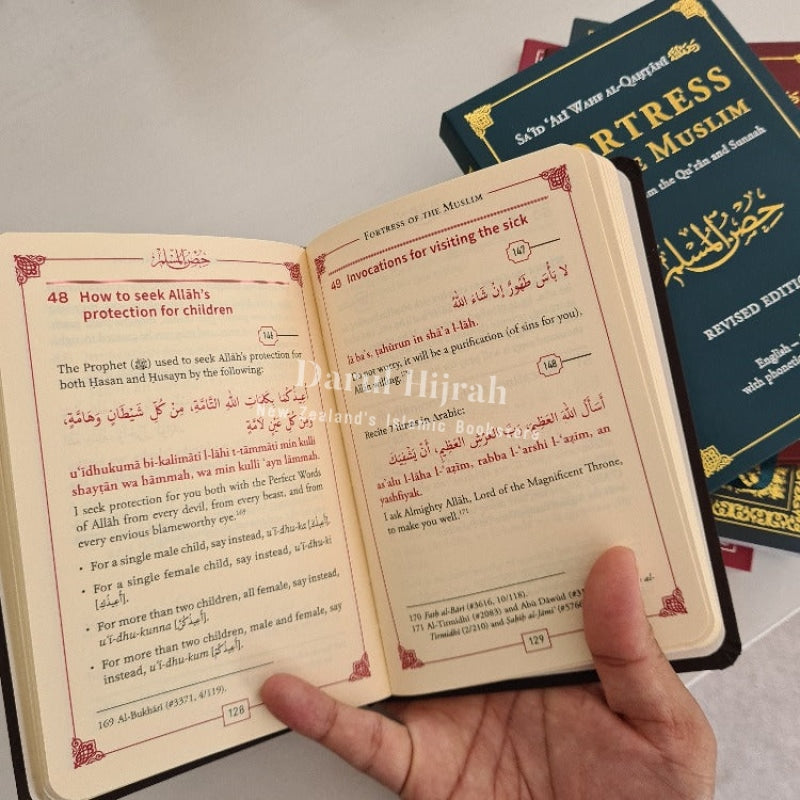 حصن المسلم
48 How to seek Allāh's
protection for children
146
The Prophet (ﷺ) used to seek Allāh's protection for
both Ḥasan and Ḥusayn by the following:
أُعِيذُكُمَا بِكَلِمَاتِ اللهِ التَّامَّةِ، مِنْ كُلِّ شَيْطَانٍ وَهَامَّةٍ،
وَمِنْ كُلِّ عَيْنٍ لَامَّةٍ
u'īdhukumā bi-kalimāti l-lāhi t-tāmmati min kulli
shayṭān wa hāmmah, wa min kulli 'ayn lāmmah.
I seek protection for you both with the Perfect Words
of Allāh from every devil, from every beast, and from
every envious blameworthy eye.169
• For a single male child, say instead, u'ī-dhu-ka [أُعِيذُكَ].
• For a single female child, say instead, u'ī-dhu-ki
[أُعِيذُكِ].
• For more than two children, all female, say instead,
u'ī-dhu-kunna [أُعِيذُكُنَّ].
• For more than two children, male and female, say
instead, u'ī-dhu-kum [أُعِيذُكُمْ].
169 Al-Bukhārī (#3371, 4/119).
128
Fortress of the Muslim
49 Invocations for visiting the sick
147
لَا بَأْسَ طَهُورٌ إِنْ شَاءَ اللهُ
lā ba's, ṭahūrun in shā'a l-lāh.
Do not worry, it will be a purification (of sins for you),
Allāh willing.170
148
Recite 7 times in Arabic:
أَسْأَلُ اللهَ الْعَظِيمَ، رَبَّ الْعَرْشِ الْعَظِيمِ، أَنْ يَشْفِيَكَ
as'alu l-lāha l-'aẓīm, rabba l-'arshi l-'aẓīm, an
yashfiyak.
I ask Almighty Allāh, Lord of the Magnificent Throne,
to make you well.171
170 Fatḥ al-Bārī (#3616, 10/118).
171 Al-Tirmidhī (#2083) and Abū Dāwūd al-
Tirmidhī (2/210) and Ṣaḥīḥ al-Jāmi'
129
Sa'īd 'Alī Wahf al-Qaḥṭānī
FORTRESS
Muslim
the Qu'rān and Sunnah
حصن المسلم
REVISED EDITION
English –
with phonetic
Darul Hijrah
New Zealand's Islamic Bookstore